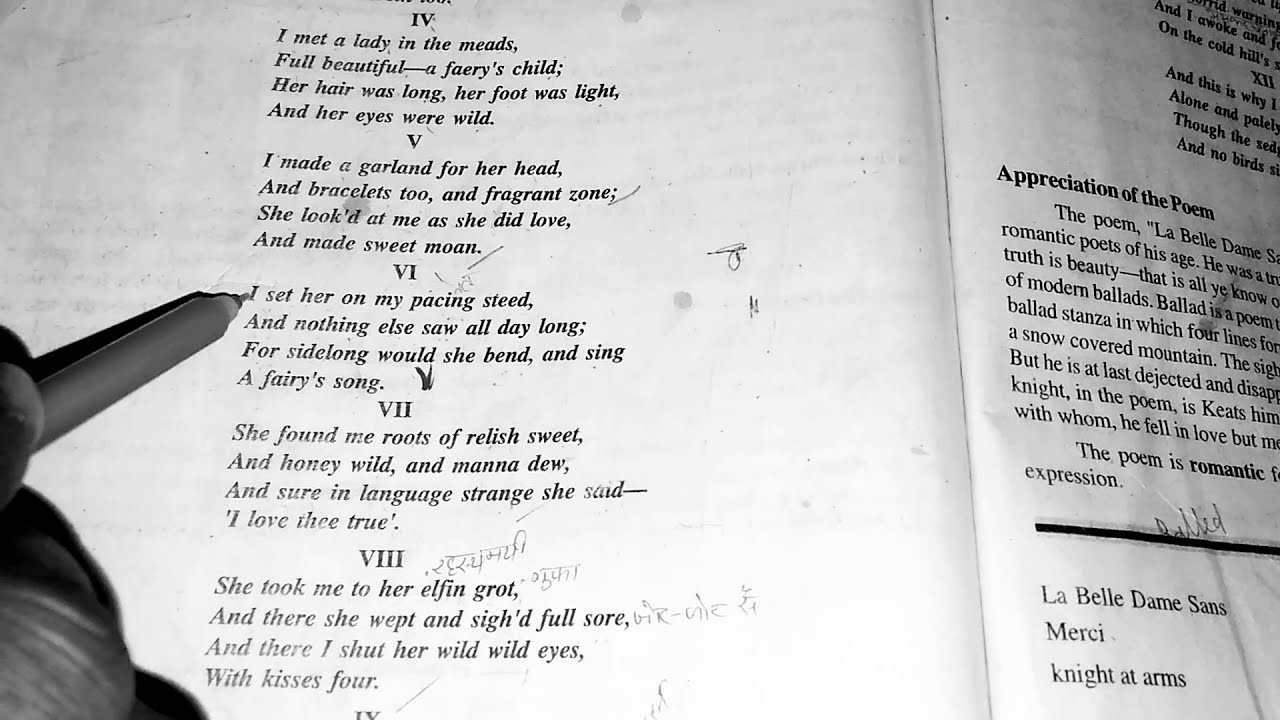 IV
I met a lady in the meads,
Full beautiful—a faery's child;
Her hair was long, her foot was light,
And her eyes were wild.
V
I made a garland for her head,
And bracelets too, and fragrant zone;
She look'd at me as she did love,
And made sweet moan.
VI
I set her on my pacing steed,
And nothing else saw all day long;
For sidelong would she bend, and sing
A fairy's song.
VII
She found me roots of relish sweet,
And honey wild, and manna dew,
And sure in language strange she said—
'I love thee true'.
VIII
रहस्यमयी
She took me to her elfin grot, गुफा
And there she wept and sigh'd full sore, जोर-जोर से
And there I shut her wild wild eyes,
With kisses four.
IX
warning
And I awoke and
On the cold hill's
XII
And this is why I
Alone and palely
Though the
And no birds
Appreciation of the Poem
The poem, "La Belle Dame
romantic poets of his age. He was a
truth is beauty—that is all ye know
of modern ballads. Ballad is a poem
ballad stanza in which four lines
a snow covered mountain. The
But he is at last dejected and
knight, in the poem, is Keats
with whom, he fell in love but
The poem is romantic
expression.
Ballad
La Belle Dame Sans
Merci
knight at arms